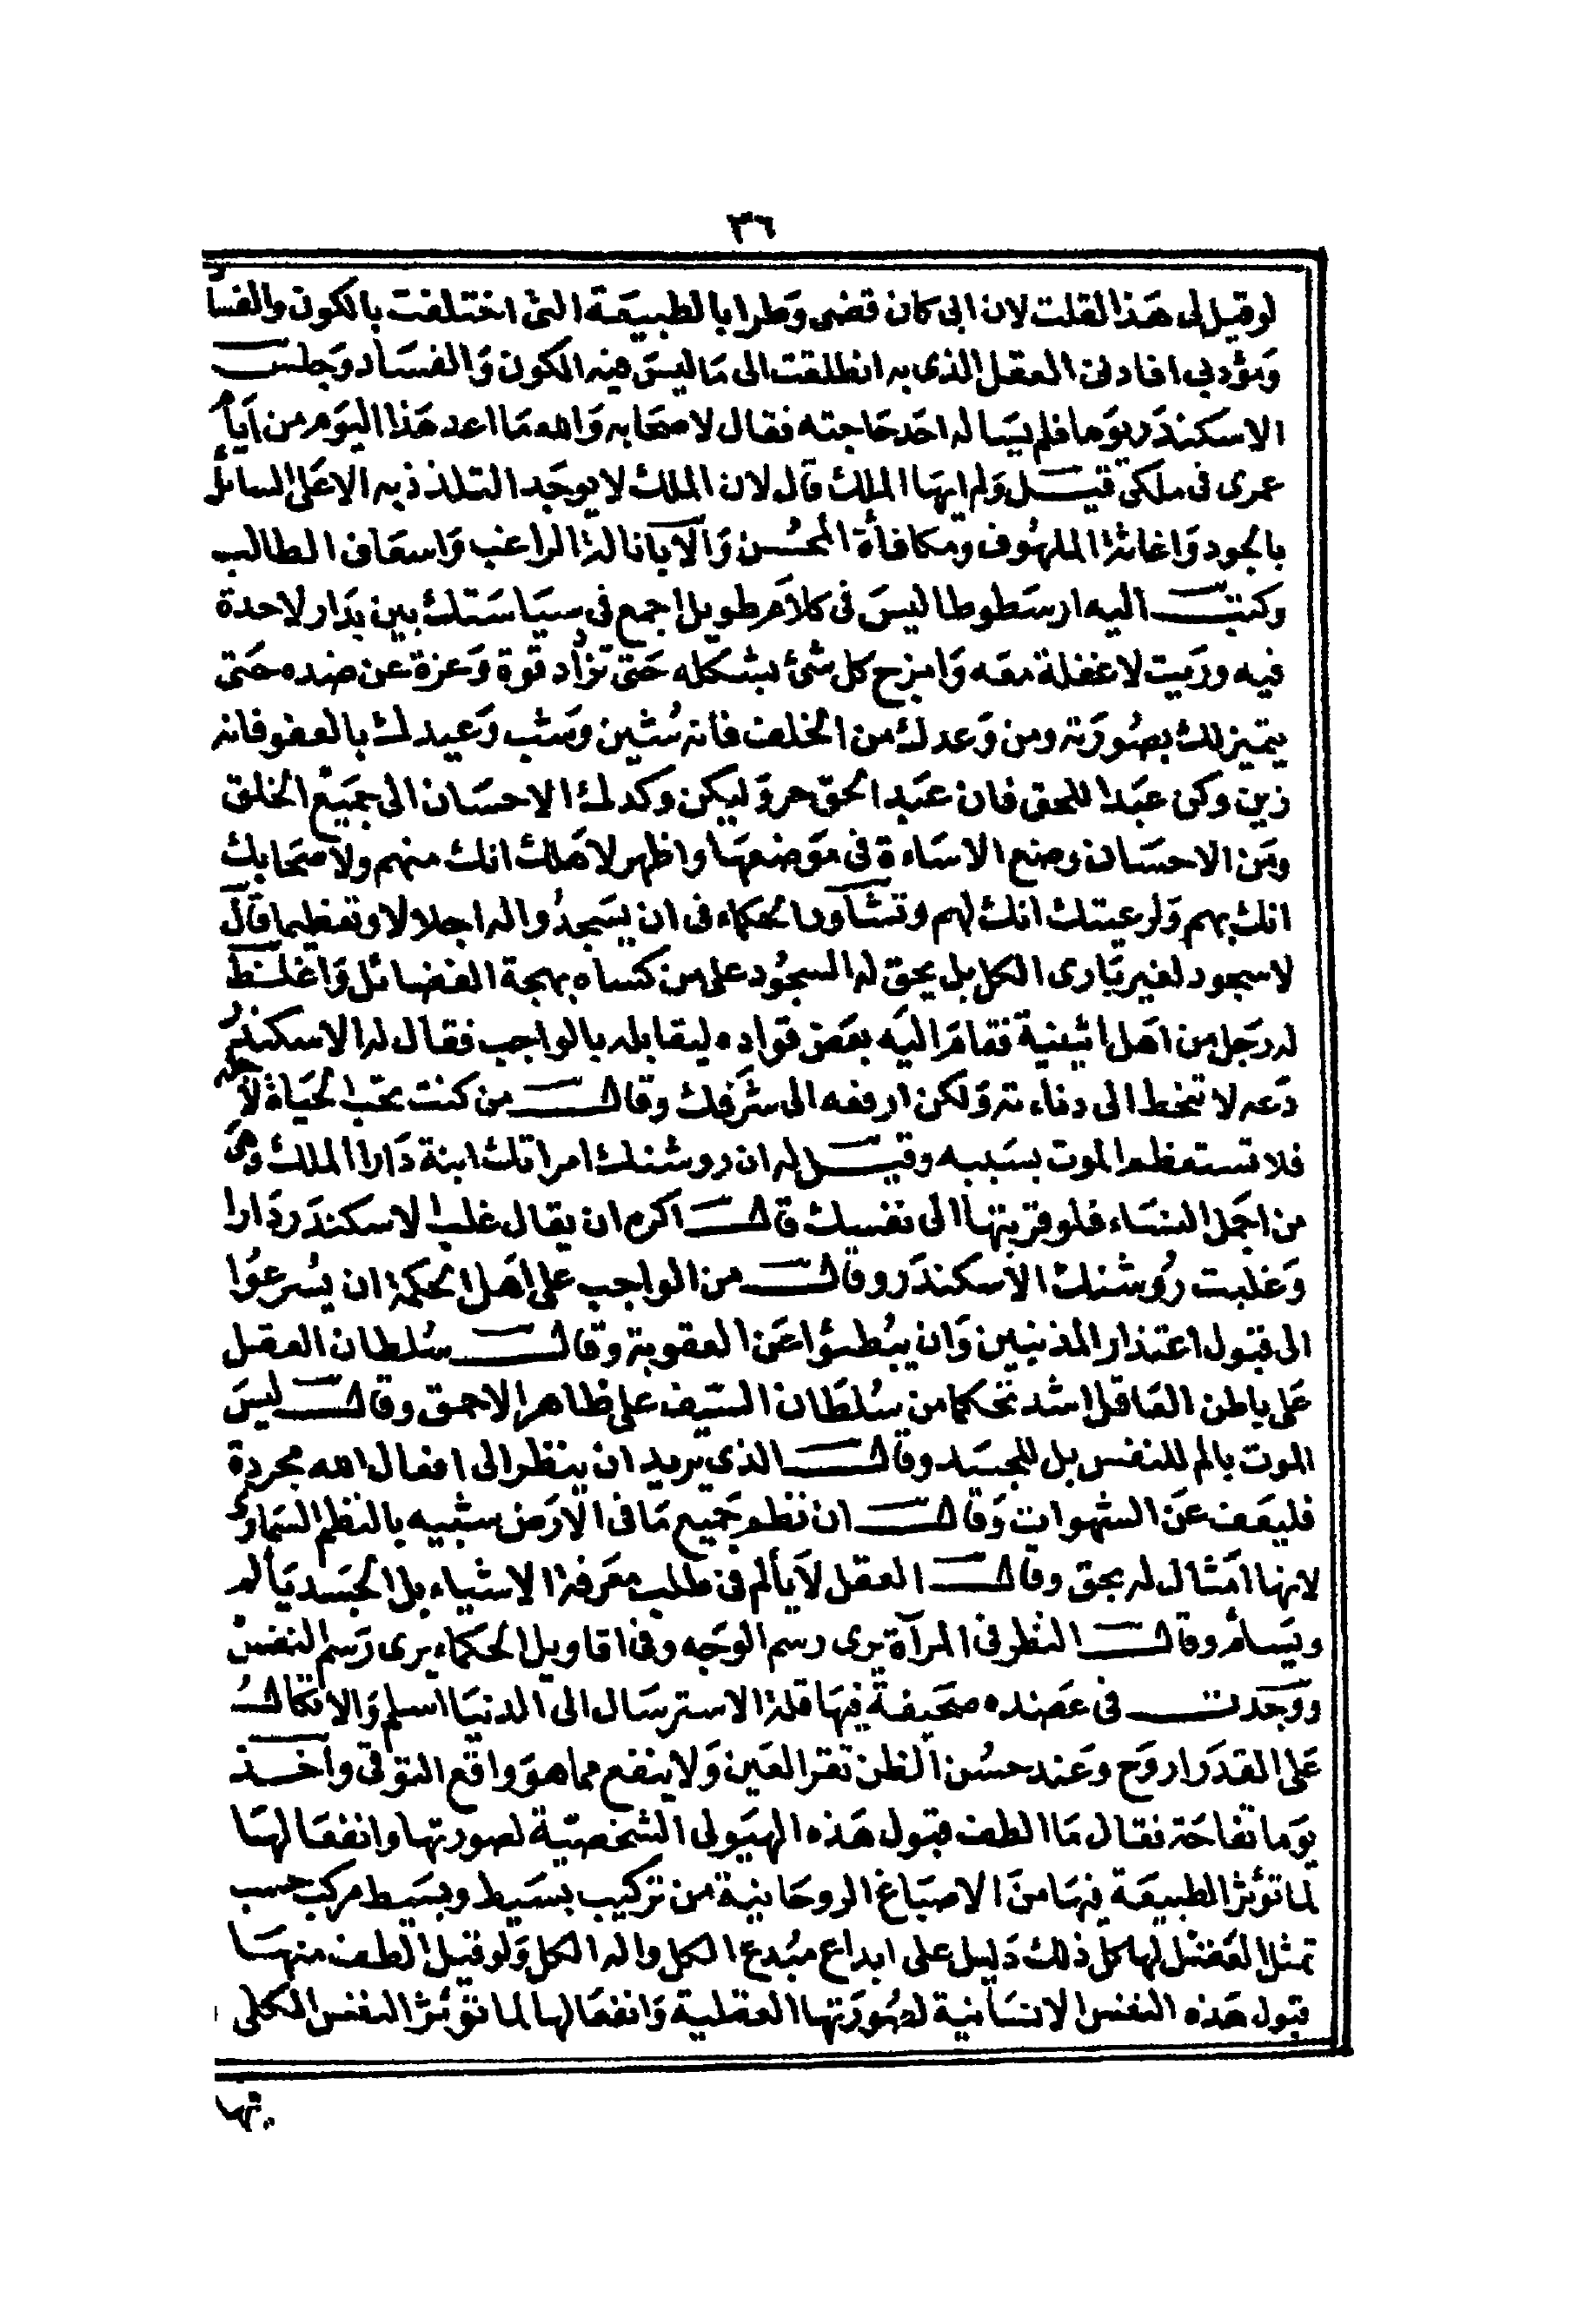 ٣٦
لو قيل لى هذا لقلت لان ابى كان قضى وطرا بالطبيعة التى اختلفت بالكون والفسا
ومؤدبى افادنى العقل الذى به انطلقت الى ما ليس فيه الكون والفساد وجلس
الاسكندر يوما فلم يساله احد حاجته فقال لاصحابه والله ما اعد هذا اليوم من ايام
عمرى فى ملكى قيل ولم ايها الملك قال لان الملك لا يوجد التلذذ به الا على السائل
بالجود واغاثة الملهوف ومكافأة المحسن والا بانالة الراغب واسعاف الطالب
وكتب اليه ارسطوطاليس فى كلام طويل اجمع فى سياستك بين بدار لاحدة
فيه وريث لا غفلة معه وامزج كل شئ بشكله حتى تزداد قوة وعزة عن ضده حتى
يتميز لك بصورته ومن وعدك من الخلف فانه شين وشب وعيدك بالعفو فانه
زين وكن عبدا للحق فان عبد الحق حر وليكن وكدك الاحسان الى جميع الخلق
ومن الاحسان وضع الاساءة فى موضعها واظهر لاهلك انك منهم ولاصحابك
انك بهم ولرعيتك انك لهم وتشاور الحكماء فى ان يسجدوا له اجلالا وتعظيما قال
لا سجود لغير بارى الكل بل يحق له السجود على من كساه بهجة الفضائل واغلظ
له رجل من اهل اثينية فقام اليه بعض قواده ليقابله بالواجب فقال له الاسكندر
دعه لا تنحط الى دناءته ولكن ارفعه الى شرفك وقال من كنت تحب الحياة لاجله
فلا تستعظم الموت بسببه وقيل له ان روشنك امراتك ابنة دارا الملك وهى
من اجمل النساء فلو قربتها الى نفسك قال اكره ان يقال غلب الاسكندر دارا
وغلبت روشنك الاسكندر وقال من الواجب على اهل الحكمة ان يسرعوا
الى قبول اعتذار المذنبين وان يبطئوا عن العقوبة وقال سلطان العقل
على باطن العاقل اشد تحكما من سلطان السيف على ظاهر الاحمق وقال ليس
الموت بالم للنفس بل للجسد وقال الذى يريد ان ينظر الى افعال الله مجردة
فليعف عن الشهوات وقال ان نظم جميع ما فى الارض شبيه بالنظم السماوى
لانها امثال له بحق وقال العقل لا يألم فى طلب معرفة الاشياء بل الجسد يألم
ويسأم وقال النظر فى المرآة يرى رسم الوجه وفى اقاويل الحكماء يرى رسم النفس
ووجدت فى عضده صحيفة فيها قلة الاسترسال الى الدنيا اسلم والاتكال
على القدر اروح وعند حسن الظن تقر العين ولا ينفع مما هو واقع التوقى واخذ
يوما تفاحة فقال ما الطف قبول هذه الهيولى الشخصية لصورتها وانفعالها
لما تؤثر الطبيعة فيها من الاصباغ الروحانية من تركيب بسيط وبسيط مركب حسب
تمثل العقل لها كل ذلك دليل على ابداع مبدع الكل واله الكل ولو قيل الطف منها
قبول هذه النفس الانسانية لصورتها العقلية وانفعالها لما تؤثر النفس الكلى
فيها